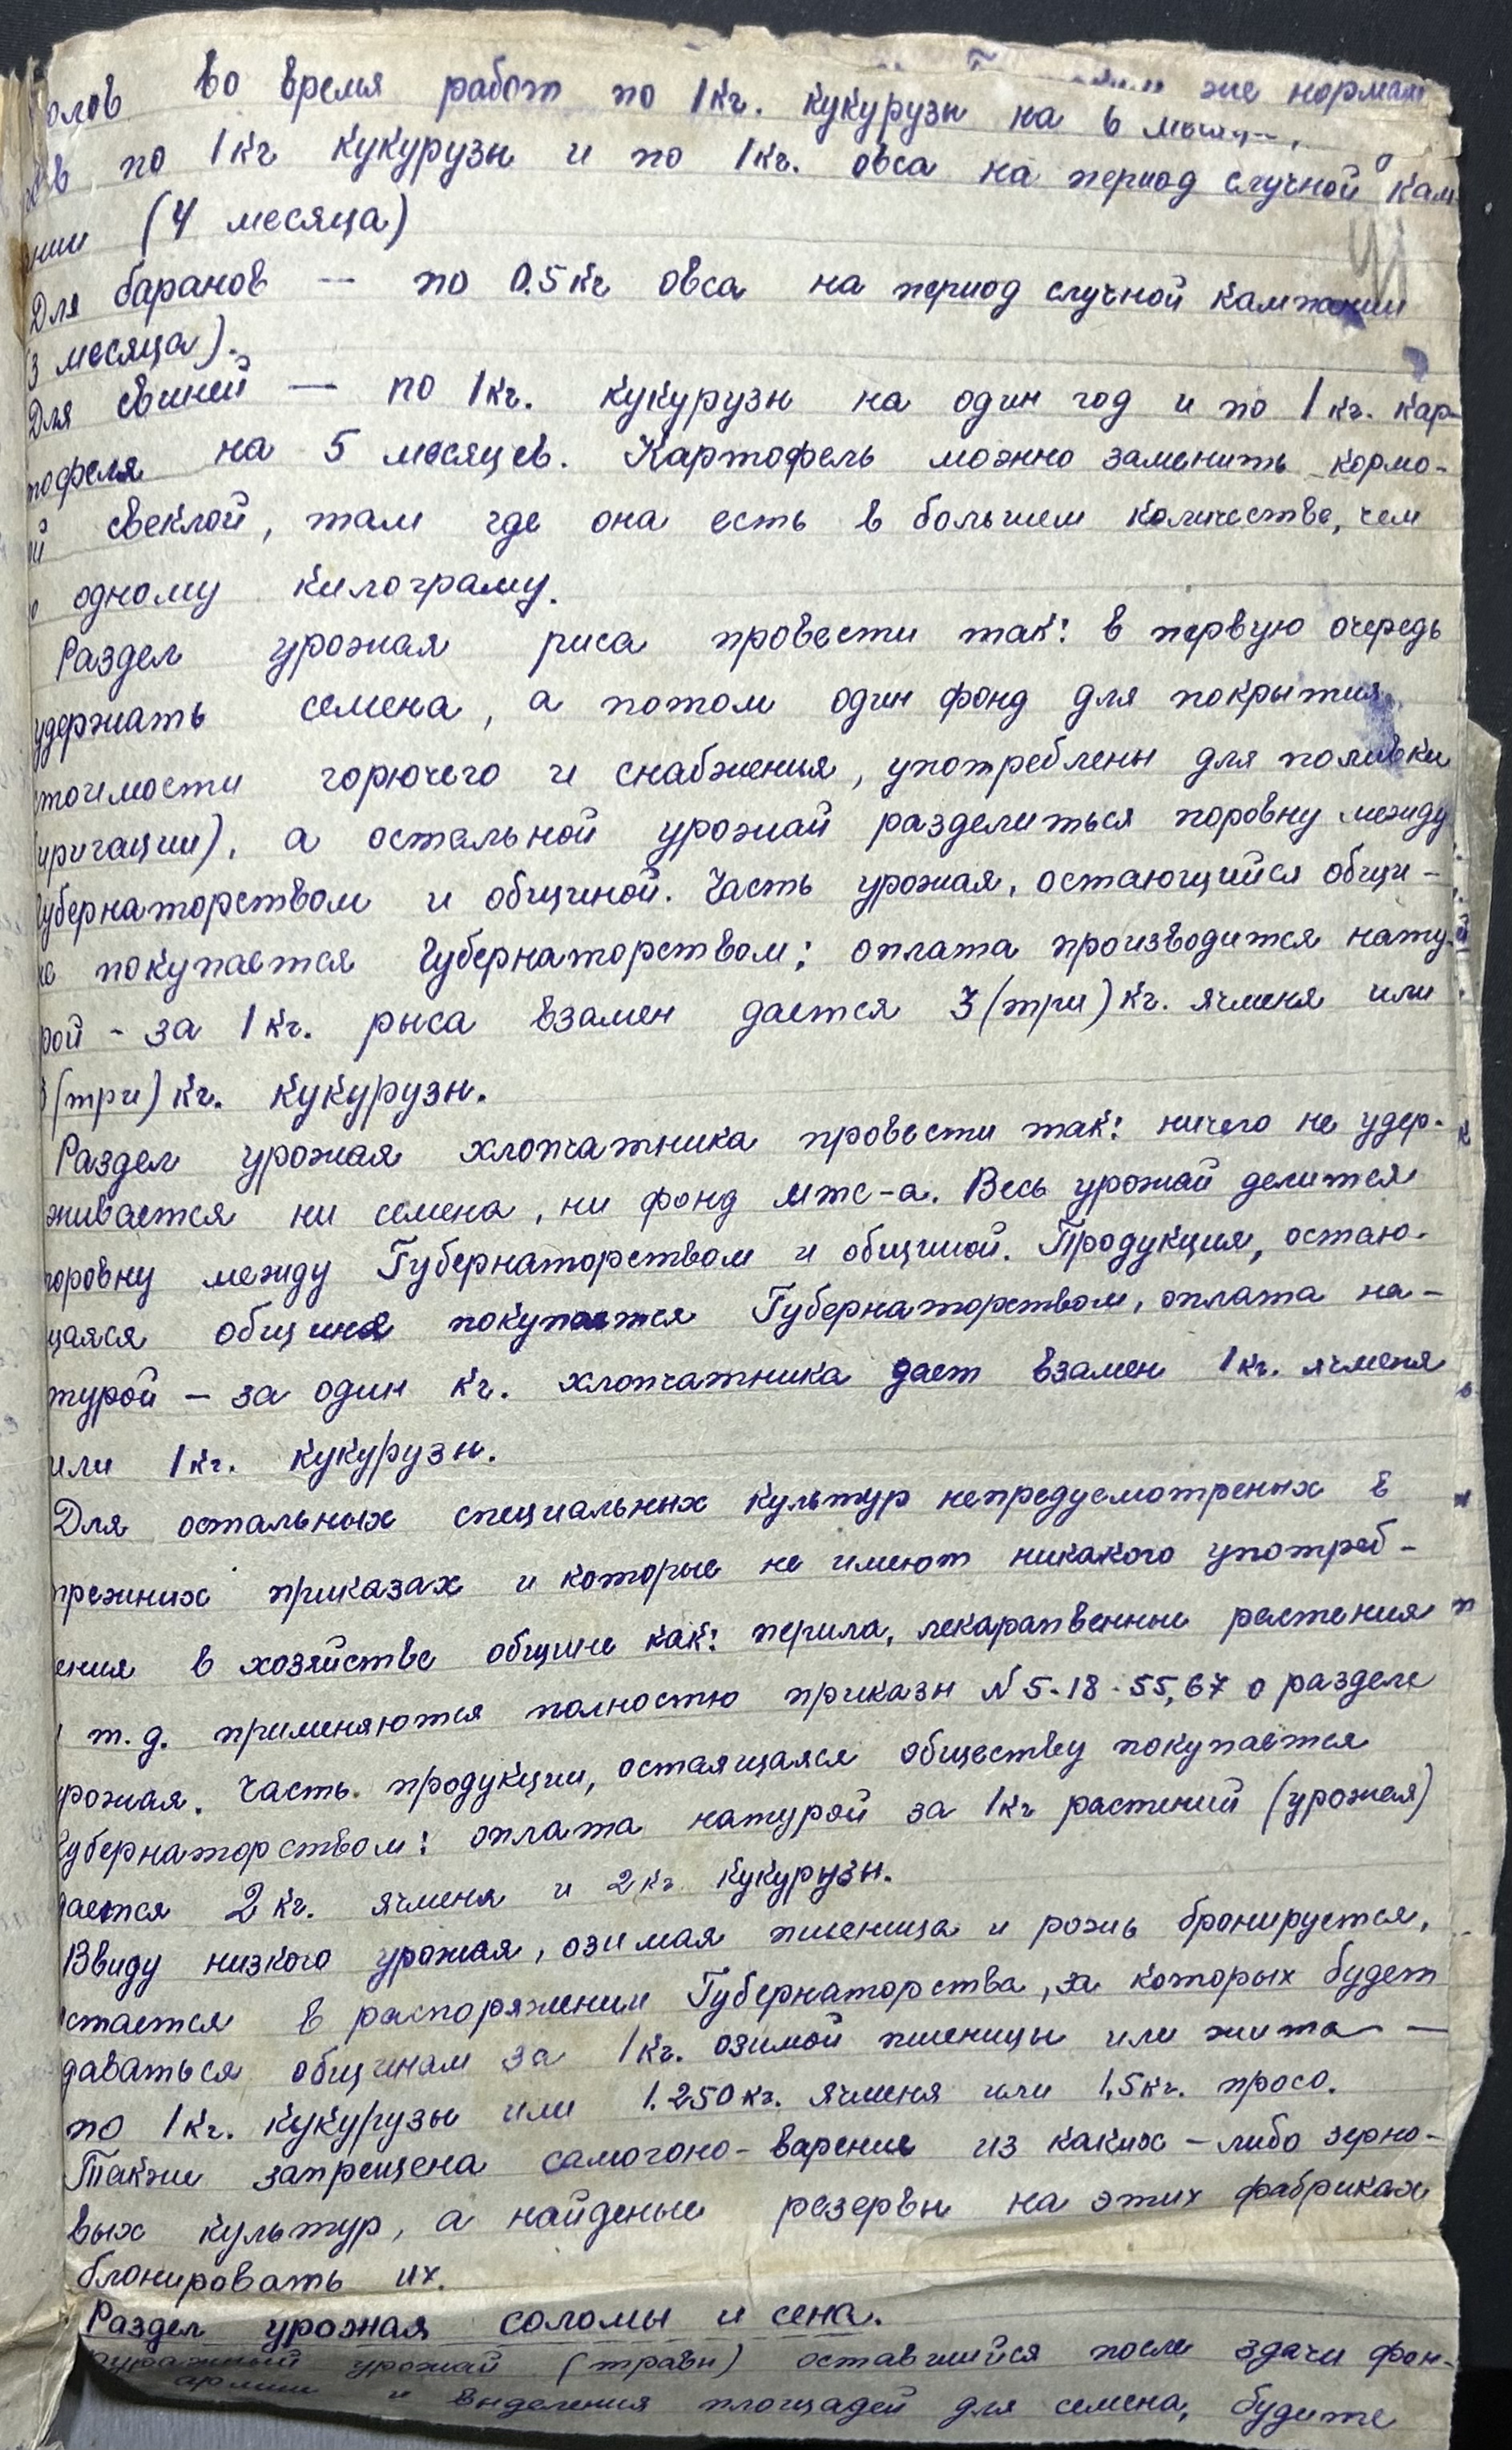 же нормам
олов во время работ по 1 кг. кукурузы на 6
ов по 1 кг кукурузы и по 1 кг. овса на период случной кам
нии (4 месяца)
Для баранов — по 0.5 кг овса на период случной кампании
(3 месяца).
Для свиней — по 1 кг. кукурузы на один год и по 1 кг. кар-
тофеля на 5 месяцев. Картофель можно заменить кормо-
ой свеклой, там где она есть в большем количестве, чем
о одному килограму.
Раздел урожая риса провести так: в первую очередь
удержать семена, а потом один фонд для покрытия
стоимости горючего и снабжения, употреблены для поливки
(иригации), а остальной урожай разделиться поровну между
Губернаторством и общиной. Часть урожая, остающийся общи-
не покупается Губернаторством; оплата производится нату-
рой - за 1 кг. рыса взамен дается 3 (три) кг. ячменя или
3 (три) кг. кукурузы.
Раздел урожая хлопчатника провести так: ничего не удер-
живается ни семена, ни фонд мтс-а. Весь урожай делится
поровну между Губернаторством и общиной. Продукция, остаю-
щаяся общине покупается Губернаторством, оплата на-
турой — за один кг. хлопчатника дает взамен 1 кг. ячменя
или 1 кг. кукурузы.
Для остальных специальных культур непредусмотреных в
прежних приказах и которые не имеют никакого употреб-
ения в хозяйстве общине как: перила, лекарапвенные растения
и т.д. применяются полностью приказы N 5-18-55,67 о разделе
урожая. Часть продукции, остаящаяся обществу покупается
Губернаторством: оплата натурой за 1 кг растений (урожая)
дается 2 кг. ячменя и 2 кг кукурузы.
Ввиду низкого урожая, озимая пшеница и рожь бронируется,
остается в распоряжении Губернаторства, за которых будет
даваться общинам за 1 кг. озимой пшеницы или жита —
по 1 кг. кукурузы или 1.250 кг. ячменя или 1,5 кг. просо.
Также запрещена самогоно-варение из каких-либо зерно-
вых культур, а найденые резервы на этих фабриках
блонировать их.
Раздел урожая соломы и сена.
Фуражный урожай (травы) оставшийся после здачи фон-
армии и выделения площадей для семена, будите